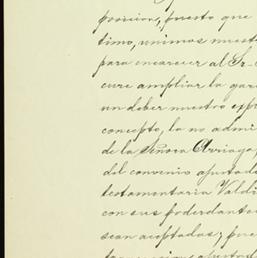 posicion, puesto que
timo, unimos nuest
para encarecer al Sr.
cure ampliar la gara
un deber nuestro exp
concepto, la no admi
de la Señora Arriaga,
del convenio ajustad
testamentaria Valdi
con sus poderdante
sean aceptadas; pue